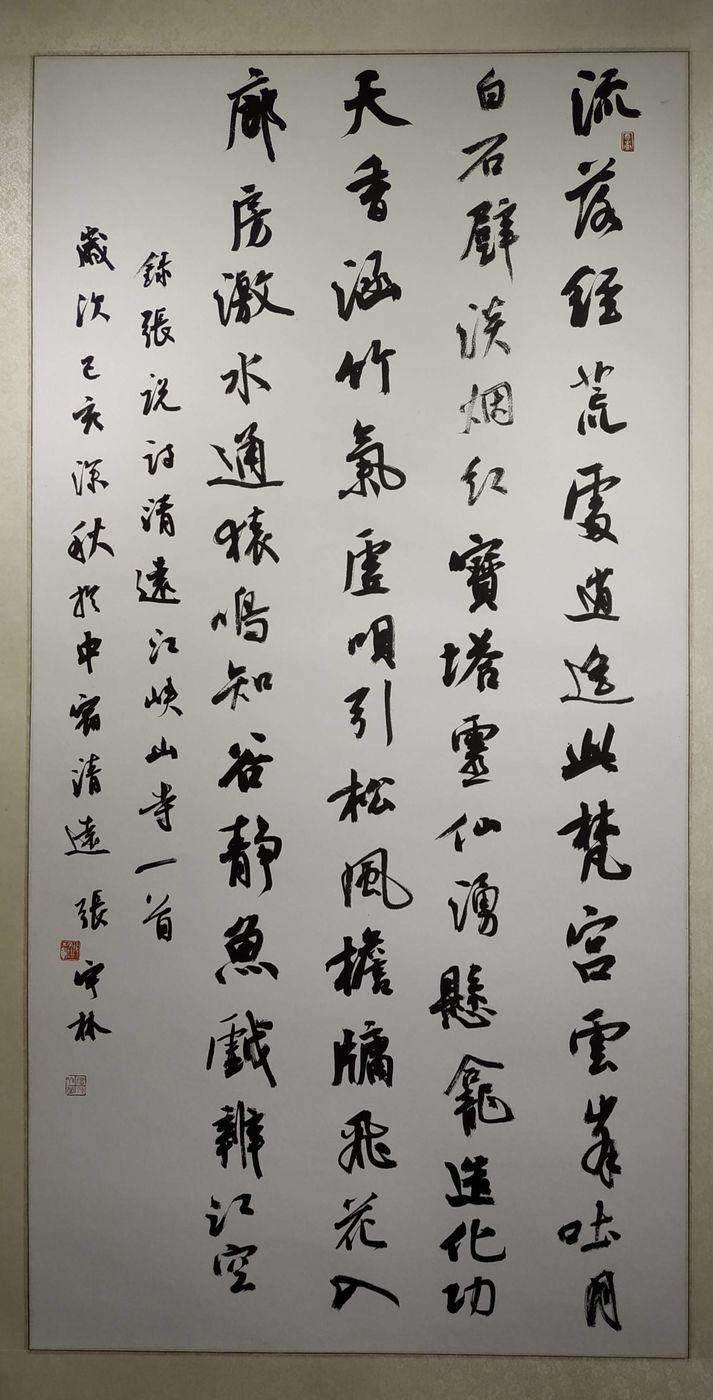 流落经荒處逍遥此梵宫雲峯吐月
白石壁淡烟红寶塔靈仙湧懸龕造化功
天香涵竹氣虚唄引松風檐牖飛花入
廊房激水通猿鳴知谷静魚戲辨江空
録張説詩清遠江峡山寺一首
歲次己亥深秋於中宿清遠 張宇林